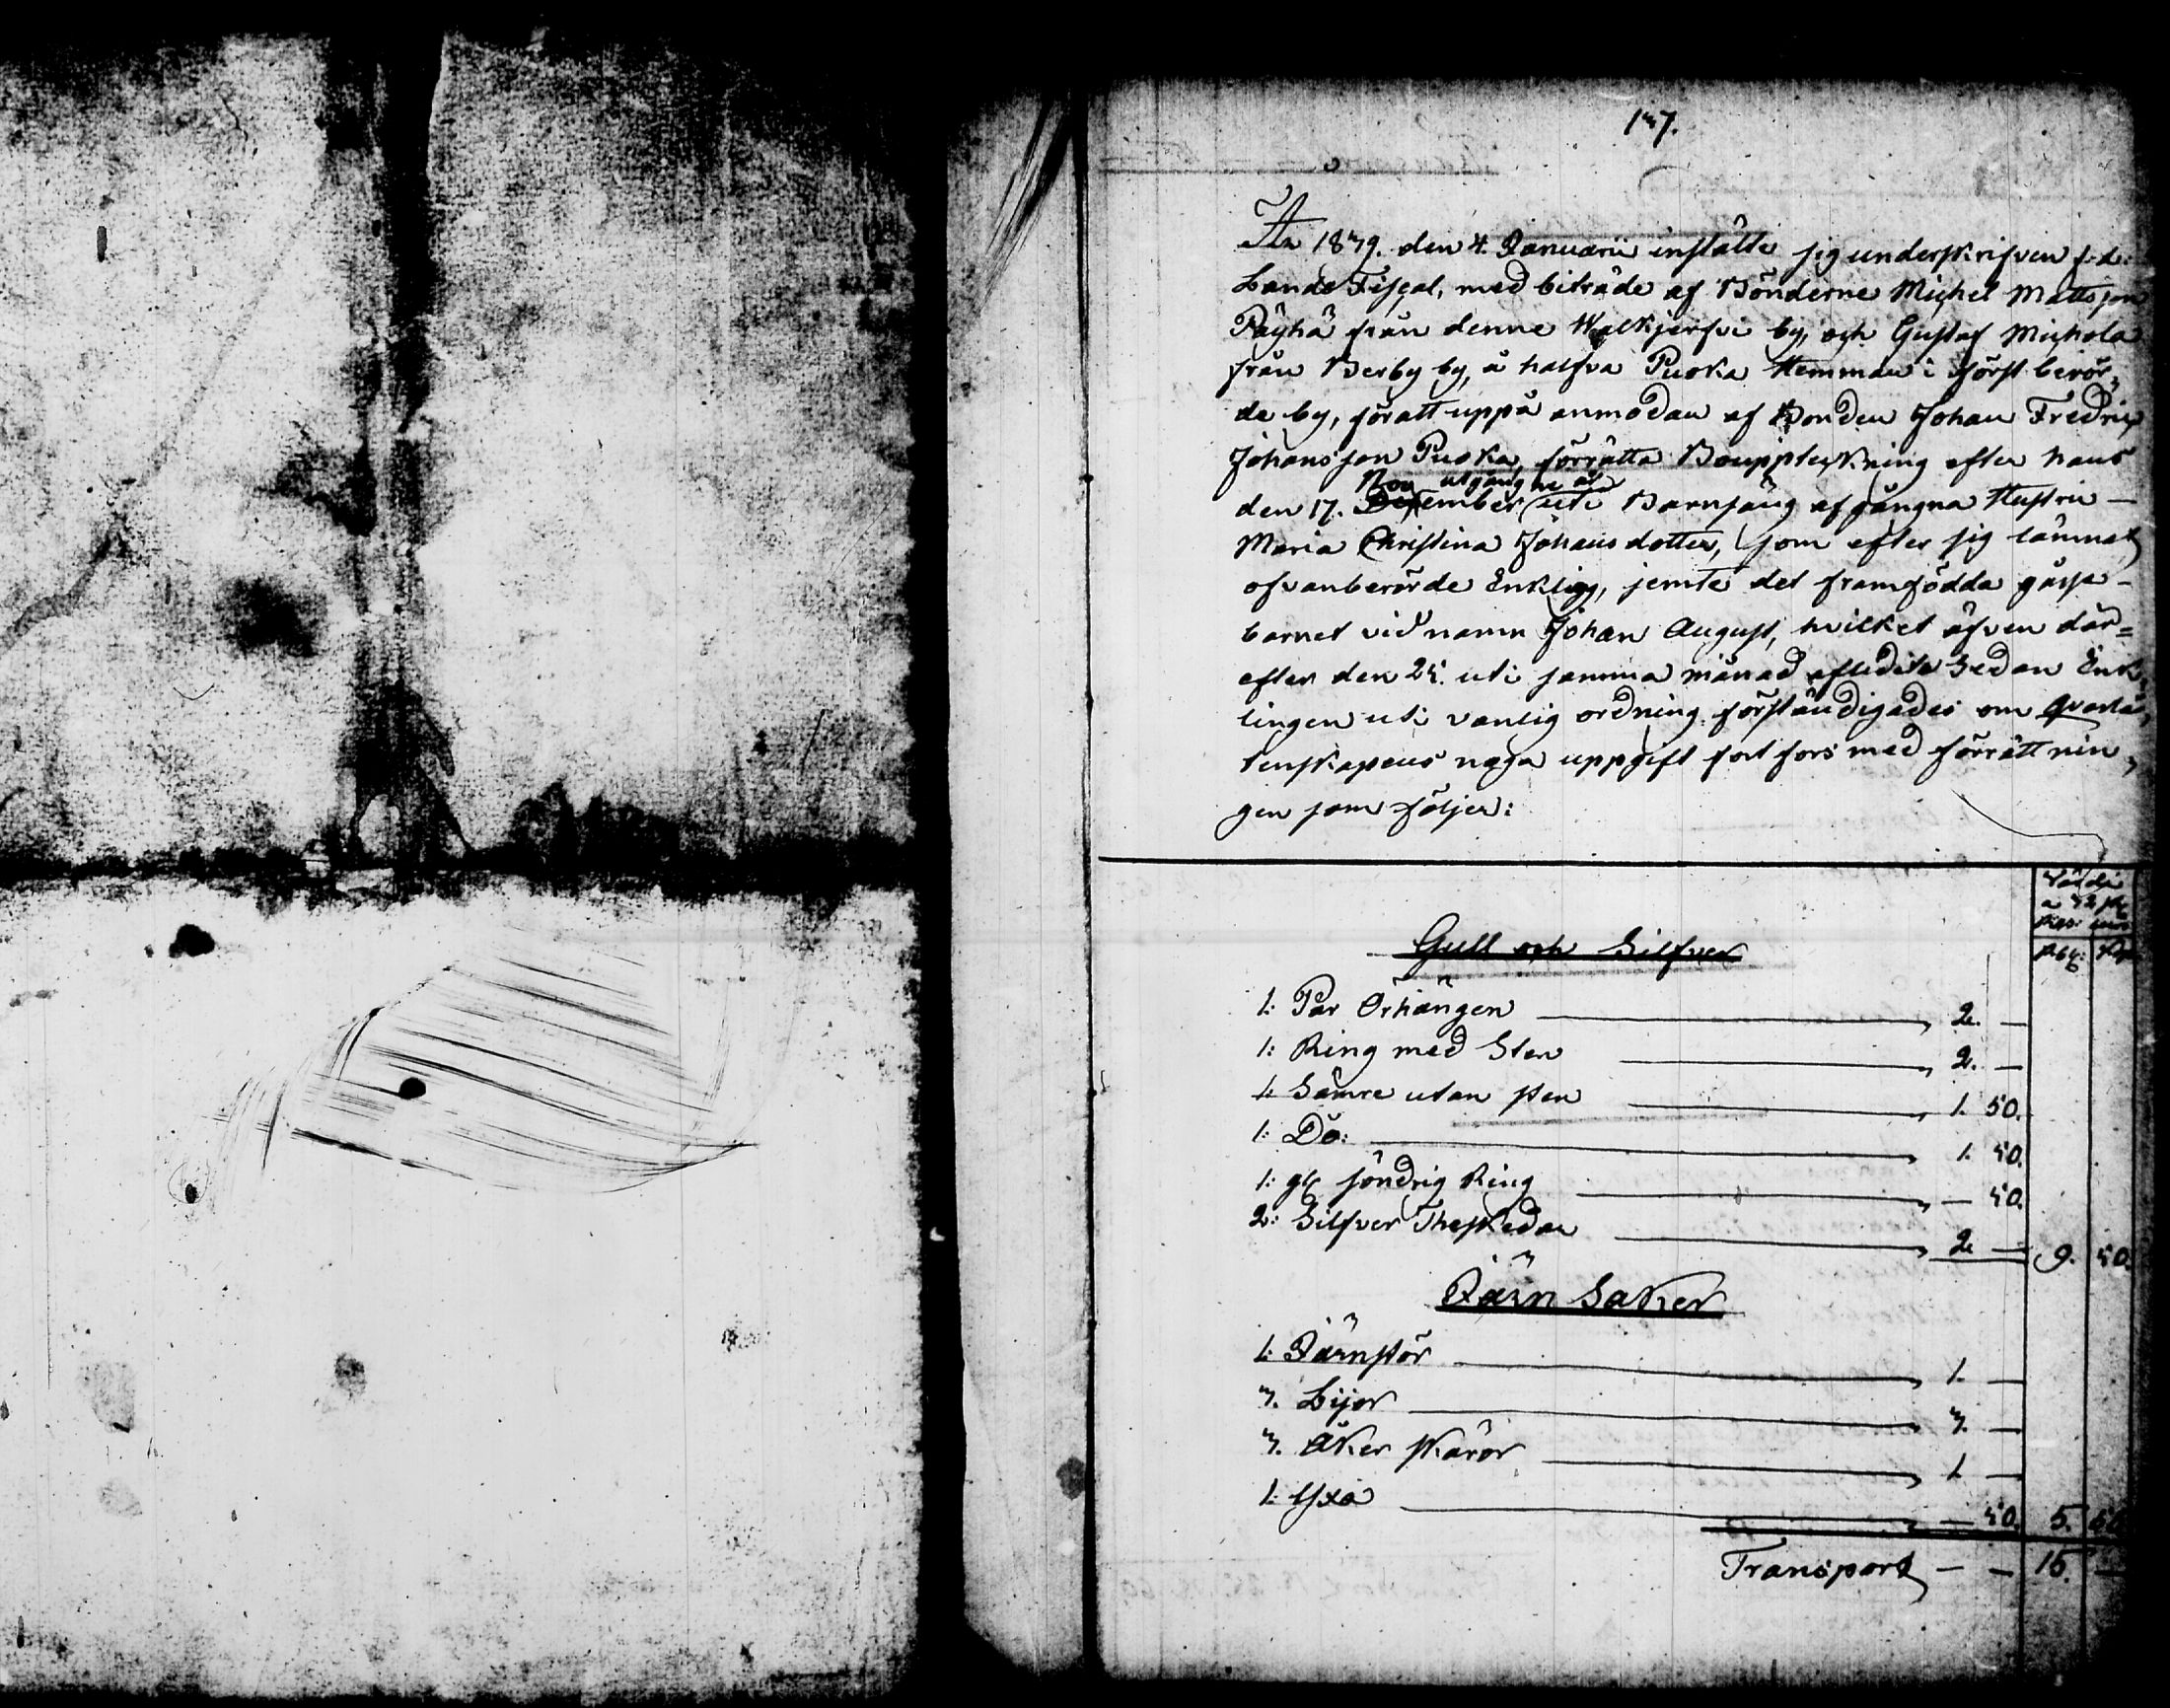 137.
År 1839. den 4. Januarii instälte sig underskrifven f: d:
Lands Fiscal, med biträde af Bönderne Michel Mattsson
Päyhä från denne Walkjerfvi by, och Gustaf Michola
från Perby by, å halfva Puoka Hemman i först berör„
de by, för att uppå anmodan af Bonden Johan Fredric
Johansson Puoka, förrätta Bouppteckning efter hans
Nov utgångne år
den 17. December uti Barnsäng afgångna Hustru —
Maria Christina Johansdotter, som efter sig lämnat
ofvanberörde Enkling, jemte det framfödda gåsse-
barnet vid namn Johan August, hvilket äfven där=
efter den 25. uti samma månad afledit. Sedan Enk„
lingen uti vanlig ordning förständigades om qvarlå„
tenskapens noga uppgift fortfors med förrättnin„
gen som följer:
Värdi
a 72 sk
Rbl: Kop
Gull och Silfver
1: Par Örhängen 2. —
1: Ring med Sten 2. —
1: Sämre utan sten 1. 50.
1: Do: 1. 50.
1: gl söndrig Ring — 50.
2: Silfver Theskedar 2 — 9. 50.
Järn Saker
1: Järnstör 1. —
3. Lijor 3. —
3. Åker skäror 1 —
1: Yxa — 50. 5. 50
Transport — — 15. —